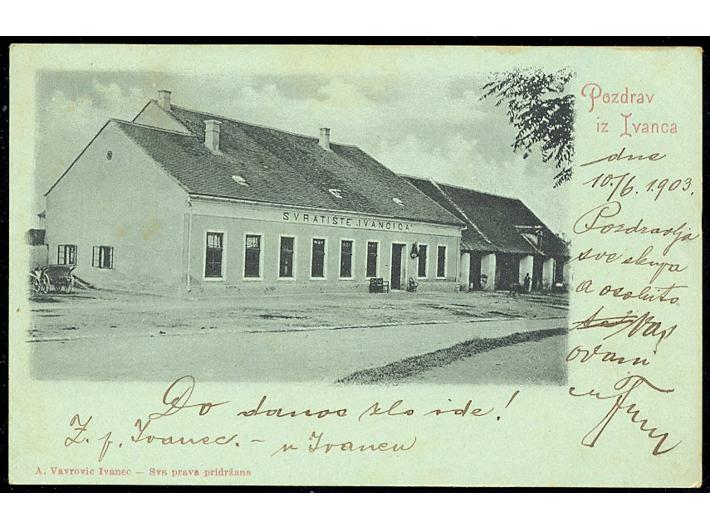 Pozdrav
iz Ivanca
dne
10./6. 1903.
Pozdravlja
sve skupa
a osobito
Vas
odani
SVRATIŠTE „IVANČICA“
Do danas zlo ide!
Z. p. Ivanec. – u Ivancu
A. Vavrovic Ivanec — Sva prava pridržana